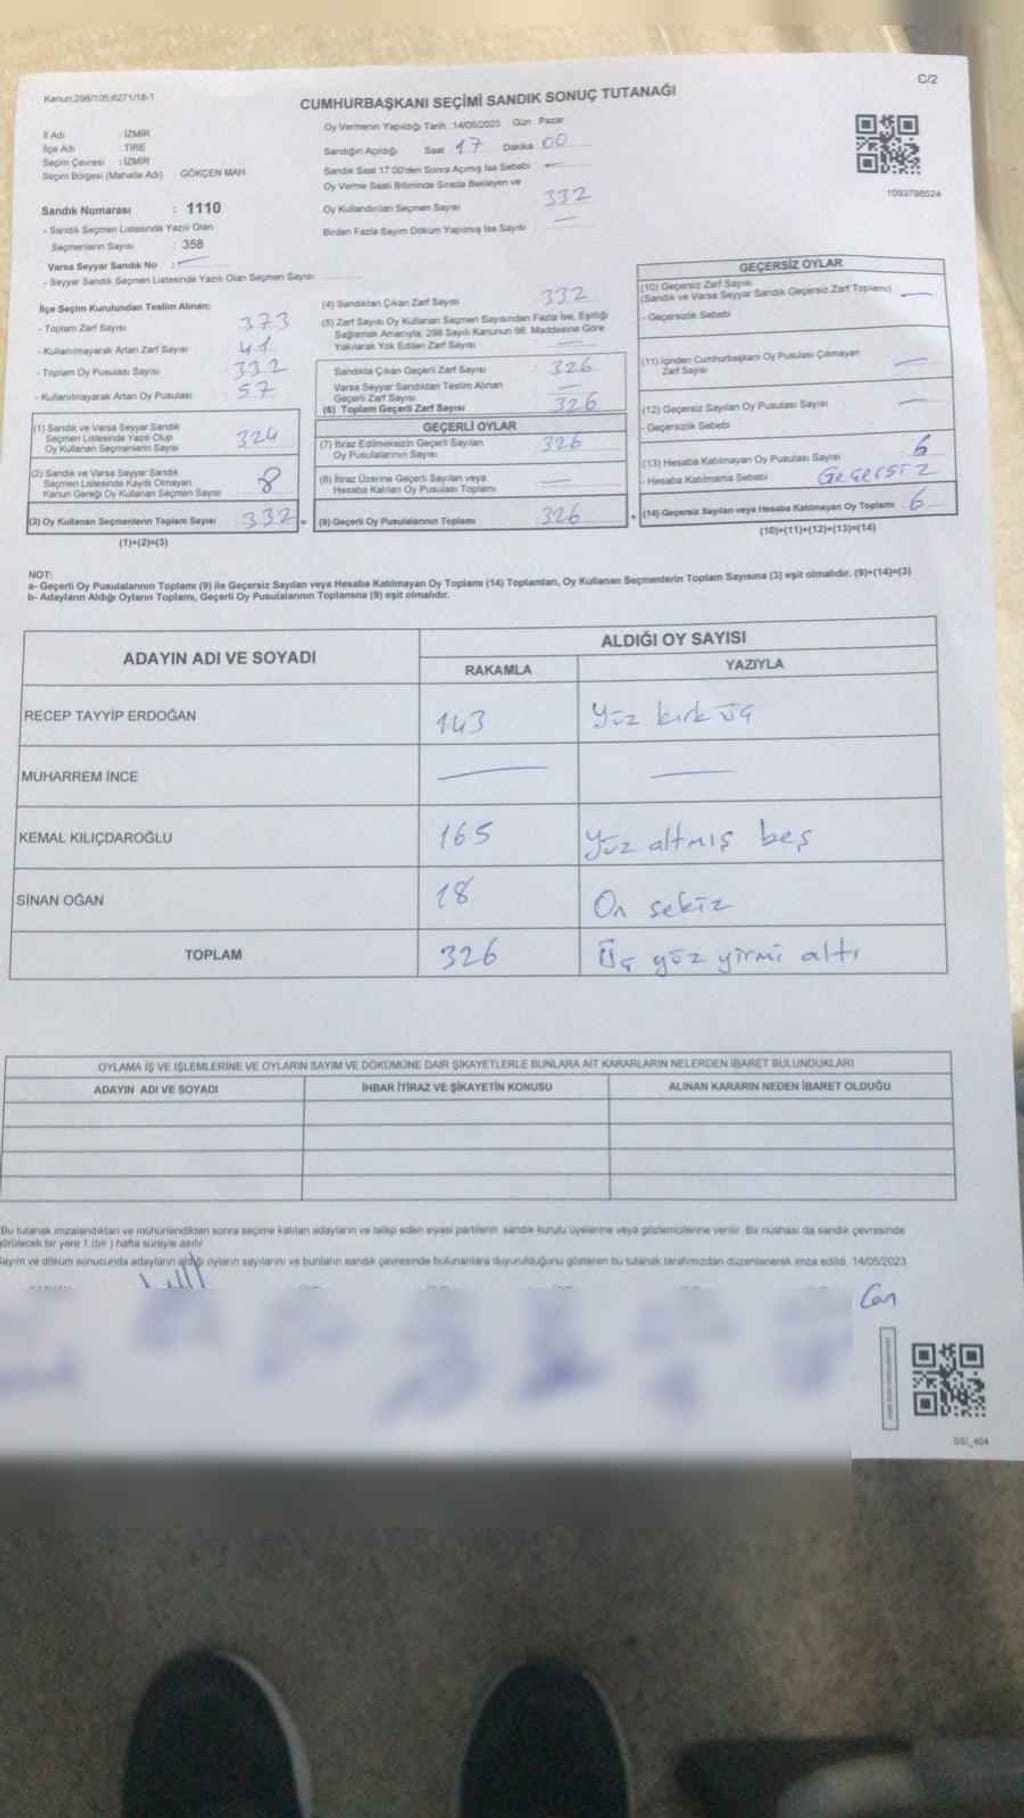 Kanun:298/105,6271/18-1
C/2
CUMHURBAŞKANI SEÇİMİ SANDIK SONUÇ TUTANAĞI
İl Adı : İZMİR
İlçe Adı : TİRE
Seçim Çevresi : İZMİR
Seçim Bölgesi (Mahalle Adı) GÖKÇEN MAH.
Oy Vermenin Yapıldığı Tarih: 14/05/2023 Gün: Pazar
Sandığın Açıldığı Saat 17 Dakika 00
Sandık Saat 17:00'den Sonra Açılmış İse Sebebi
Oy Verme Saati Bitiminde Sırada Bekleyen ve
Oy Kullandırılan Seçmen Sayısı 332
Birden Fazla Sayım Döküm Yapılmış İse Sayısı
1093798524
Sandık Numarası : 1110
- Sandık Seçmen Listesinde Yazılı Olan
Seçmenlerin Sayısı : 358
Varsa Seyyar Sandık No :
- Seyyar Sandık Seçmen Listesinde Yazılı Olan Seçmen Sayısı
İlçe Seçim Kurulundan Teslim Alınan:
- Toplam Zarf Sayısı 373
- Kullanılmayarak Artan Zarf Sayısı 41
- Toplam Oy Pusulası Sayısı 332
- Kullanılmayarak Artan Oy Pusulası 57
(1) Sandık ve Varsa Seyyar Sandık
Seçmen Listesinde Yazılı Olup
Oy Kullanan Seçmenlerin Sayısı 324
(2) Sandık ve Varsa Seyyar Sandık
Seçmen Listesinde Kayıtlı Olmayan
Kanun Gereği Oy Kullanan Seçmen Sayısı 8
(3) Oy Kullanan Seçmenlerin Toplam Sayısı 332
(1)+(2)=(3)
(4) Sandıktan Çıkan Zarf Sayısı 332
(5) Zarf Sayısı Oy Kullanan Seçmen Sayısından Fazla İse, Eşitliği
Sağlamak Amacıyla, 298 Sayılı Kanunun 98. Maddesine Göre
Yakılarak Yok Edilen Zarf Sayısı
Sandıkta Çıkan Geçerli Zarf Sayısı 326
Varsa Seyyar Sandıktan Teslim Alınan
Geçerli Zarf Sayısı
(6) Toplam Geçerli Zarf Sayısı 326
GEÇERLİ OYLAR
(7) İtiraz Edilmeksizin Geçerli Sayılan
Oy Pusulalarının Sayısı 326
(8) İtiraz Üzerine Geçerli Sayılan veya
Hesaba Katılan Oy Pusulası Toplamı
(9) Geçerli Oy Pusulalarının Toplamı 326
GEÇERSİZ OYLAR
(10) Geçersiz Zarf Sayısı
(Sandık ve Varsa Seyyar Sandık Geçersiz Zarf Toplamı)
- Geçersizlik Sebebi
(11) İçinden Cumhurbaşkanı Oy Pusulası Çıkmayan
Zarf Sayısı
(12) Geçersiz Sayılan Oy Pusulası Sayısı
- Geçersizlik Sebebi
(13) Hesaba Katılmayan Oy Pusulası Sayısı 6
- Hesaba Katılmama Sebebi Geçersiz
(14) Geçersiz Sayılan veya Hesaba Katılmayan Oy Toplamı 6
(10)+(11)+(12)+(13)=(14)
NOT:
a- Geçerli Oy Pusulalarının Toplamı (9) ile Geçersiz Sayılan veya Hesaba Katılmayan Oy Toplamı (14) Toplamları, Oy Kullanan Seçmenlerin Toplam Sayısına (3) eşit olmalıdır. (9)+(14)=(3)
b- Adayların Aldığı Oyların Toplamı, Geçerli Oy Pusulalarının Toplamına (9) eşit olmalıdır.
ADAYIN ADI VE SOYADI
ALDIĞI OY SAYISI
RAKAMLA YAZIYLA
RECEP TAYYİP ERDOĞAN 143 Yüz kırk üç
MUHARREM İNCE
KEMAL KILIÇDAROĞLU 165 Yüz altmış beş
SİNAN OĞAN 18 On sekiz
TOPLAM 326 Üç yüz yirmi altı
OYLAMA İŞ VE İŞLEMLERİNE VE OYLARIN SAYIM VE DÖKÜMÜNE DAİR ŞİKAYETLERLE BUNLARA AİT KARARLARIN NELERDEN İBARET BULUNDUKLARI
ADAYIN ADI VE SOYADI İHBAR İTİRAZ VE ŞİKAYETİN KONUSU ALINAN KARARIN NEDEN İBARET OLDUĞU
Bu tutanak imzalandıktan ve mühürlendikten sonra seçime katılan adayların ve talep eden siyasi partilerin sandık kurulu üyelerine veya gözlemcilerine verilir. Bir nüshası da sandık çevresinde
görülecek bir yere 1 (bir) hafta süreyle asılır.
Sayım ve döküm sonucunda adayların aldığı oyların sayılarını ve bunların sandık çevresinde bulunanlara duyurulduğunu gösteren bu tutanak tarafımızdan düzenlenerek imza edildi. 14/05/2023
Can